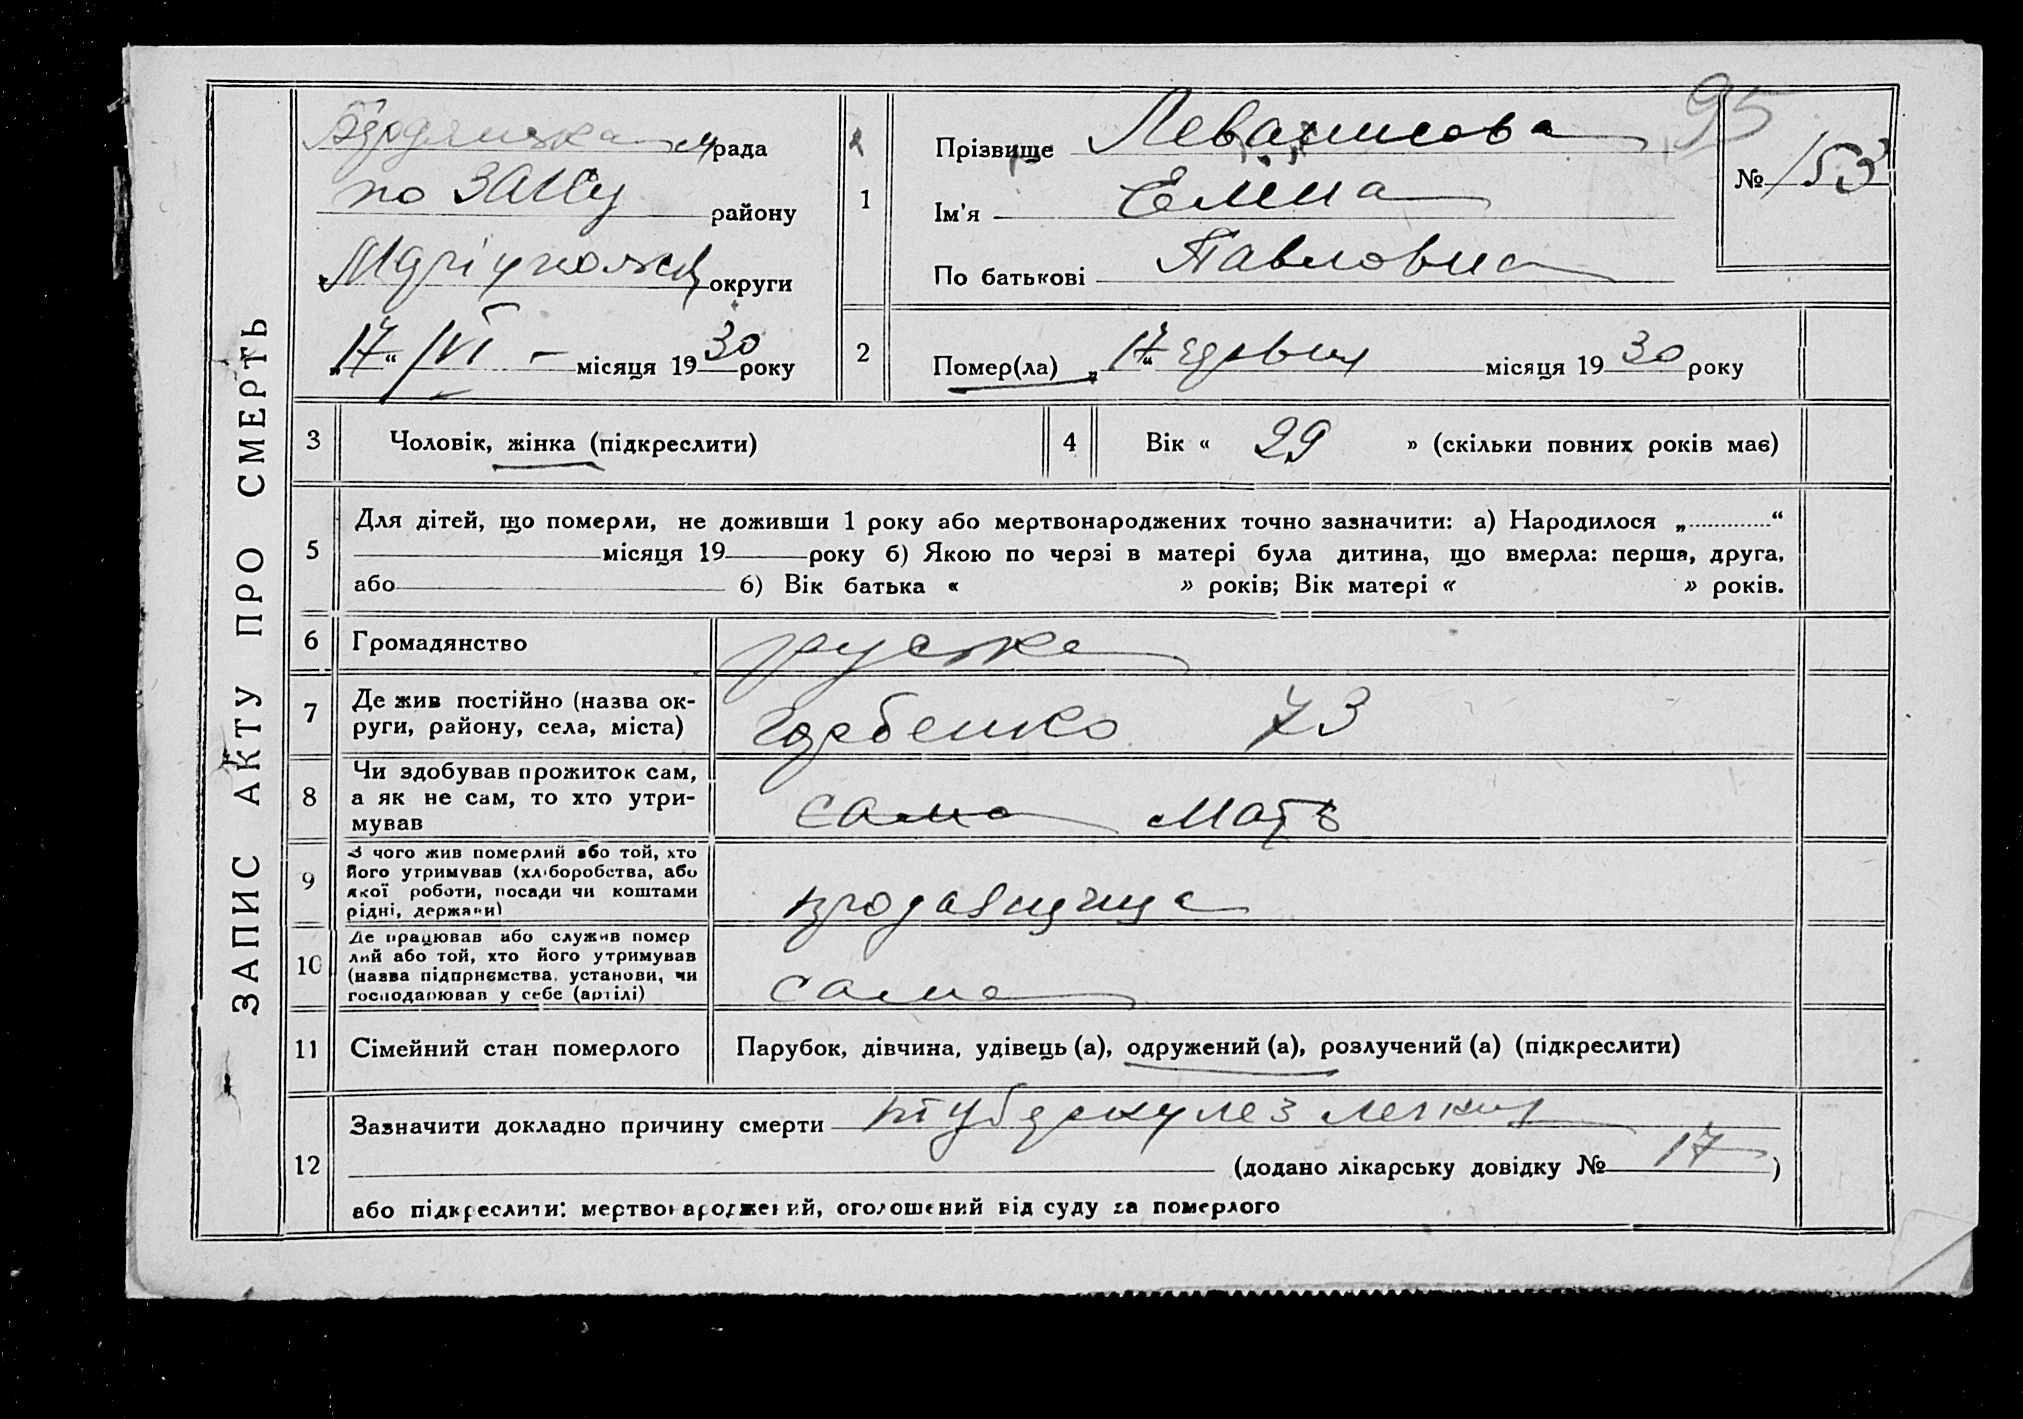 ЗАПИС АКТУ ПРО СМЕРТЬ
95
Бердянська м/рада
по ЗАГСу району
Маріупольськ округи
„17“ /VI – місяця 1930 року
1 Прізвище
Ім'я Еліна
По батькові Павловна
№ 153
2 Помер(ла) „17“ червня місяця 1930 року
3 Чоловік, жінка (підкреслити)
4 Вік « 29 » (скільки повних років має)
5 Для дітей, що померли, не доживши 1 року або мертвонароджених точно зазначити: а) Народилося „ “
місяця 19 року б) Якою по черзі в матері була дитина, що вмерла: перша, друга,
або б) Вік батька « » років; Вік матері « » років.
6 Громадянство руська
7 Де жив постійно (назва ок-
руги, району, села, міста) 73
8 Чи здобував прожиток сам,
а як не сам, то хто утри-
мував сама мать
9 З чого жив померлий або той, хто
його утримував (хліборобства, або
якої роботи, посади чи коштами
рідні, держави) продавщица
10 Де працював або служив помер
лий або той, хто його утримував
(назва підприємства, установи, чи
господарював у себе (артілі) сама
11 Сімейний стан померлого Парубок, дівчина, удівець (а), одружений (а), розлучений (а) (підкреслити)
12 Зазначити докладно причину смерти туберкулез легких
(додано лікарську довідку № 17)
або підкреслити: мертвонароджений, оголошений від суду за померлого